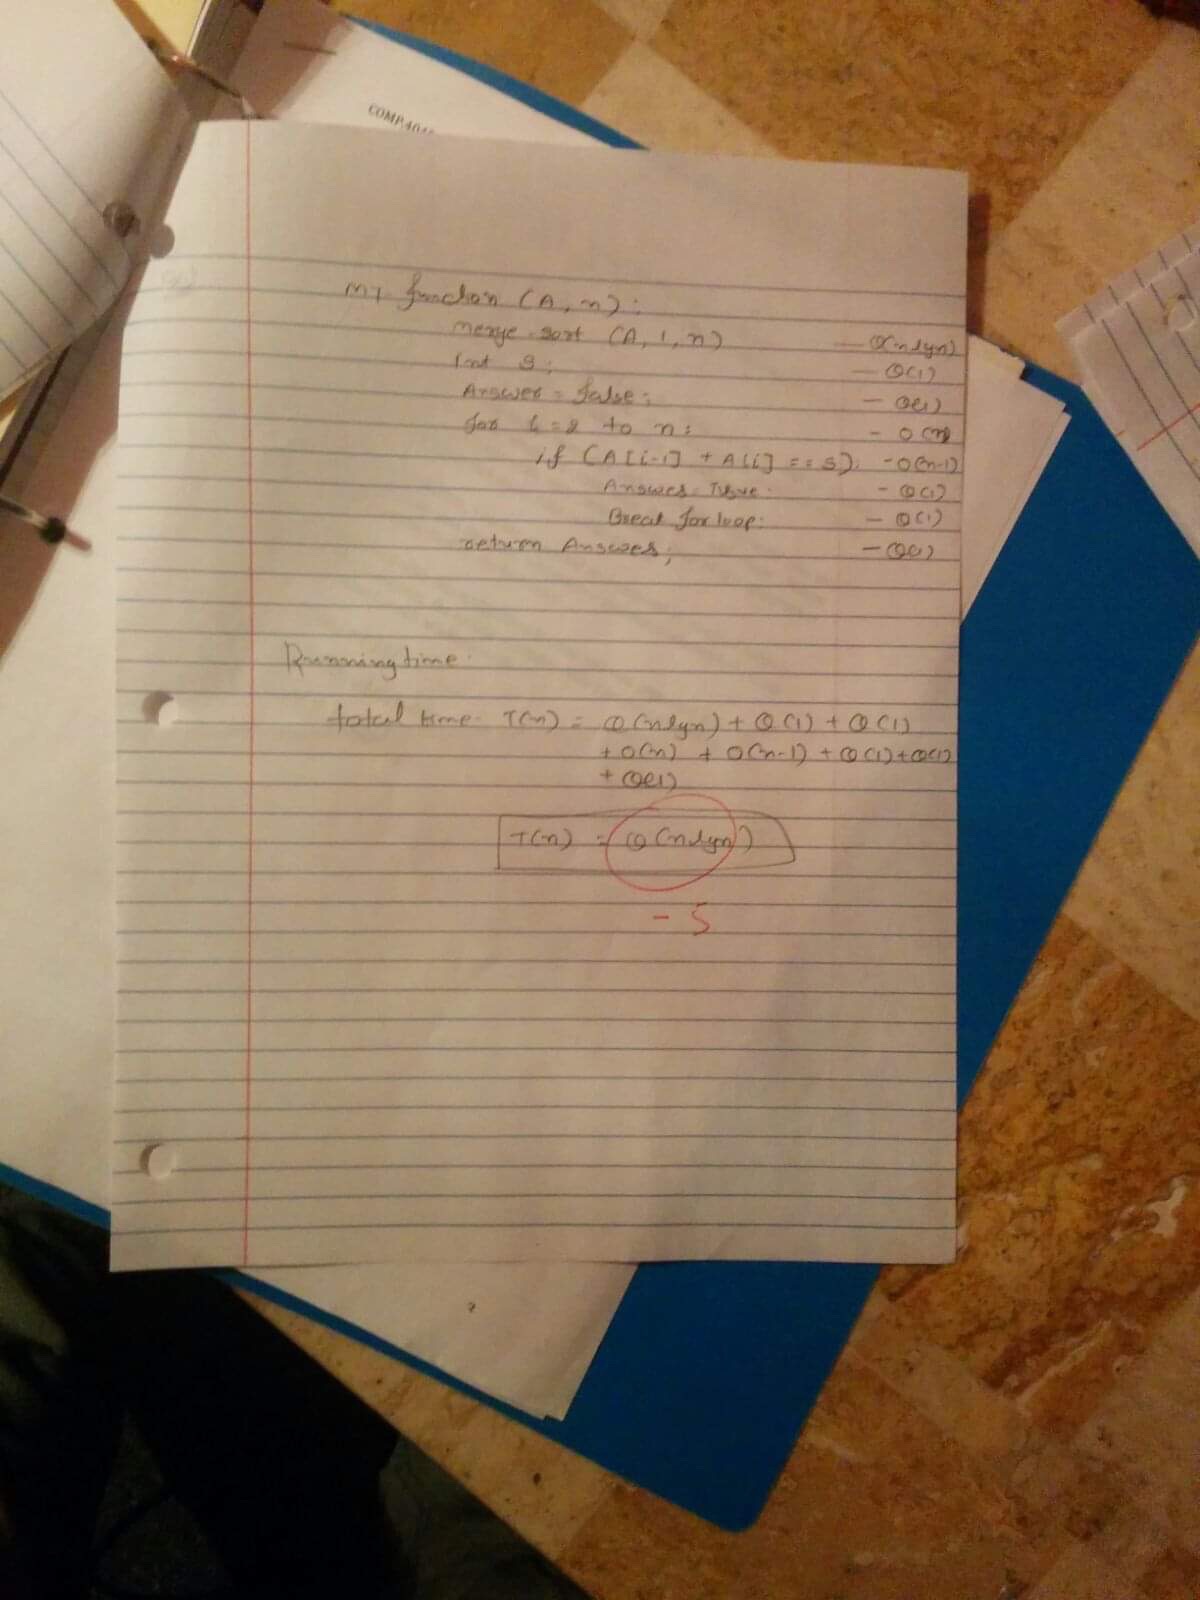 COMP404
My function (A, n):
merge-sort (A, 1, n) — Θ(nlgn)
Int S; — Θ(1)
Answer = false; — Θ(1)
for i = 2 to n: — O(n)
if (A[i-1] + A[i] == S). — O(n-1)
Answer = True. — Θ(1)
Break for loop. — Θ(1)
return Answer; — Θ(1)
Running time.
total time. T(n) = Θ(nlgn) + Θ(1) + Θ(1)
+ O(n) + O(n-1) + Θ(1) + Θ(1)
+ Θ(1)
T(n) = Θ(nlgn)
- 5
2